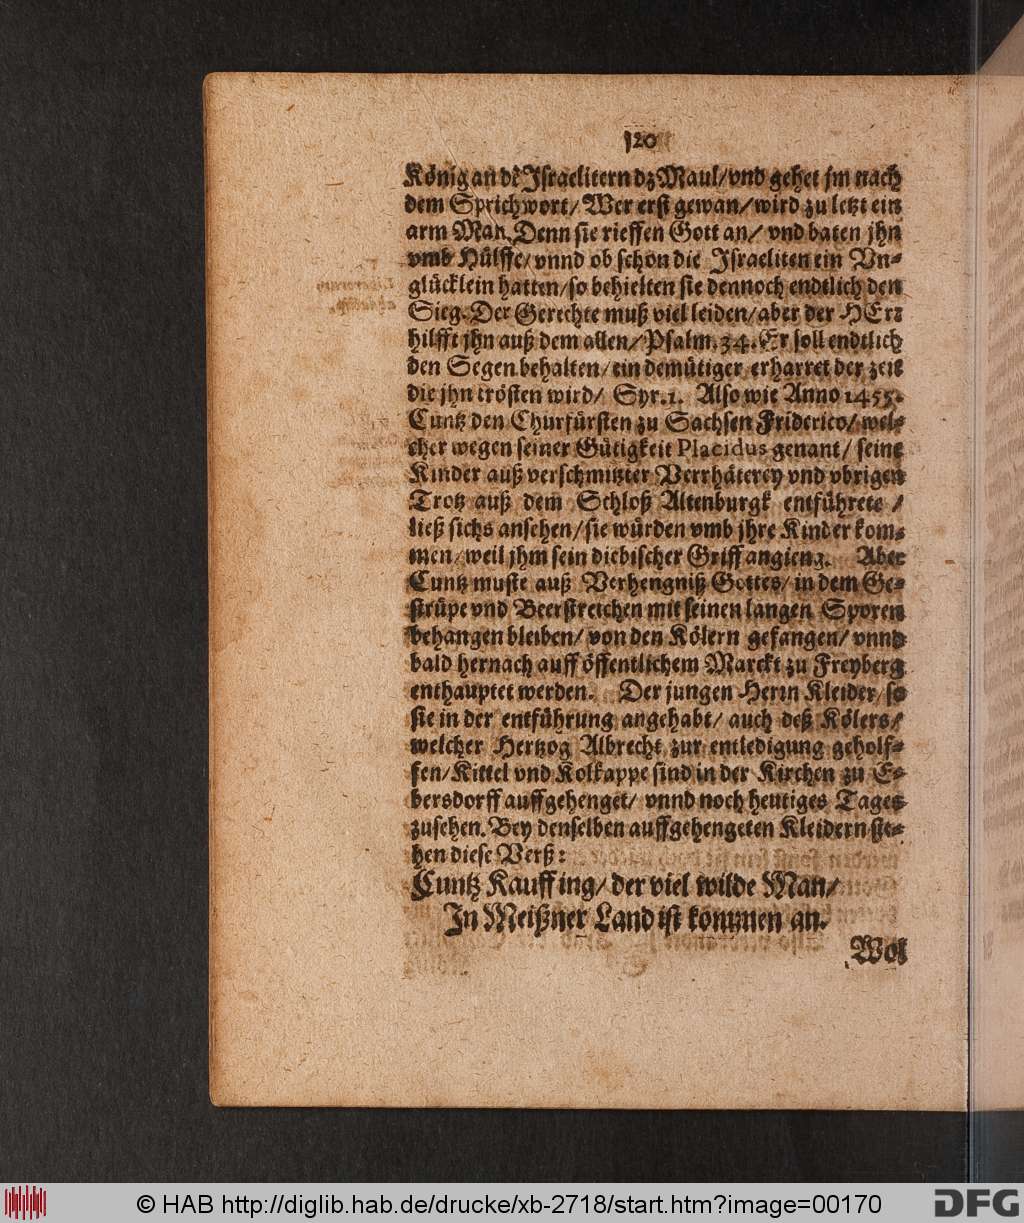 120
König an dē Israelitern dz Maul/ vnd gehet jm nach
dem Sprichwort/ Wer erst gewan/ wird zu letzt ein
arm Man. Denn sie rieffen Gott an/ vnd baten jhn
vmb Hülffe/ vnnd ob schon die Israeliten ein Vn-
glücklein hatten/ so behielten sie dennoch endtlich den
Sieg. Der Gerechte muß viel leiden/ aber der HErr
hilfft jhn auß dem allen/ Psalm. 34. Er soll endtlich
den Segen behalten/ ein demütiger erharret der zeit
die jhn trösten wird/ Syr. 1. Also wie Anno 1455.
Cuntz den Churfürsten zu Sachsen Friderico/ wel-
cher wegen seiner Gütigkeit Placidus genant/ seine
Kinder auß verschmitzter Verrhäterey vnd vbrigen
Trotz auß dem Schloß Altenburgk entführete /
ließ sichs ansehen/ sie würden vmb jhre Kinder kom-
men/ weil jhm sein diebischer Griff angieng. Aber
Cuntz muste auß Verhengniß Gottes/ in dem Ge-
strüpe vnd Beerstreichen mit seinen langen Sporen
behangen bleiben/ von den Kölern gefangen/ vnnd
bald hernach auff öffentlichem Marckt zu Freyberg
enthauptet werden. Der jungen Herrn Kleider/ so
sie in der entführung angehabt/ auch deß Kölers/
welcher Hertzog Albrecht zur entledigung geholf-
fen/ Kittel vnd Kolkappe sind in der Kirchen zu E-
bersdorff auffgehenget/ vnnd noch heutiges Tages
zusehen. Bey denselben auffgehengeten Kleidern ste-
hen diese Verß:
Cuntz Kauffing/ der viel wilde Man/
In Meißner Land ist kommen an.
Wol
© HAB http://diglib.hab.de/drucke/xb-2718/start.htm?image=00170
DFG